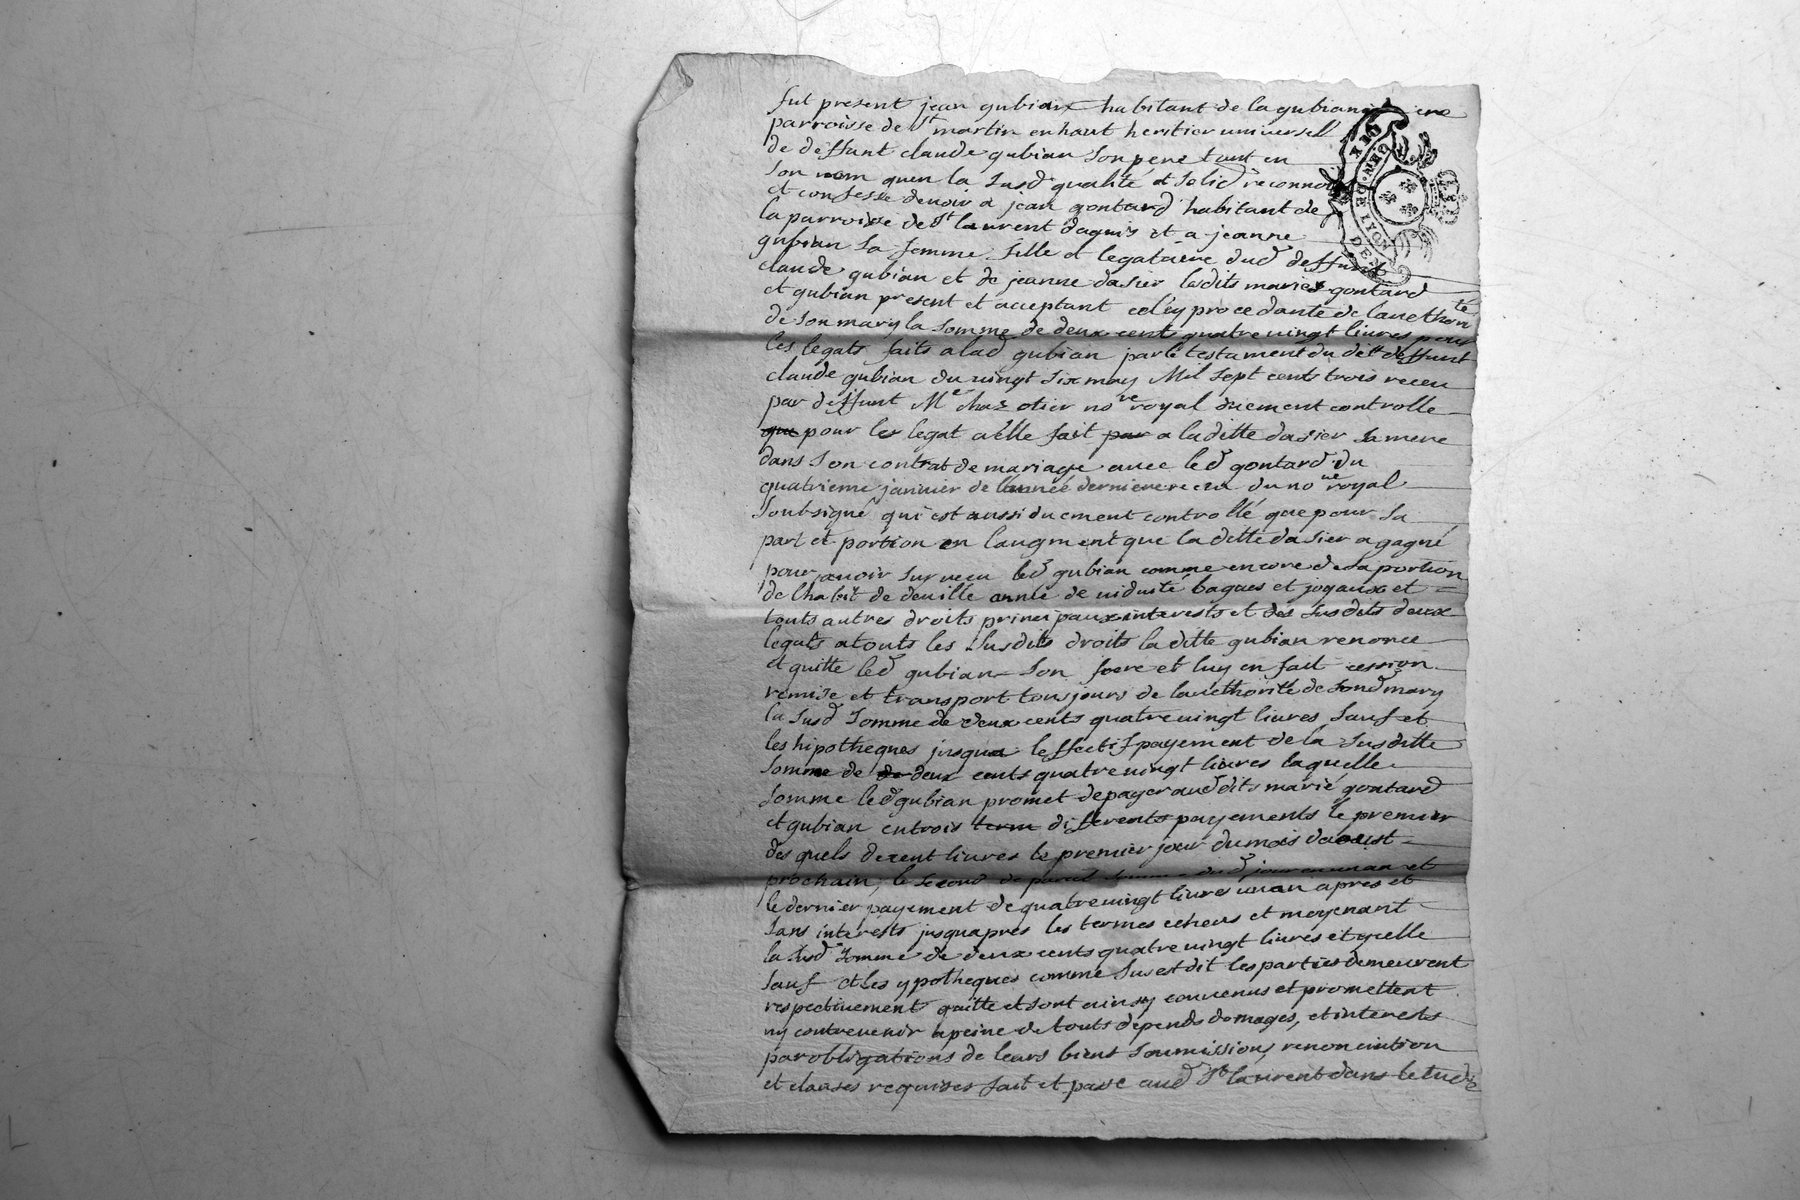 fut present jean gubian habitant de la gubian
parroisse de St martin en haut heritier universell
de deffunt claude gubian son pere tant en
son nom quen la susd qualité et solid reconnoi
et confesse devoir a jean gontard habitant de
la parroisse de St laurent dagnis et a jeanne
gubian sa femme fille et legataire dud deffunt
claude gubian et de jeanne dasier lesdits mariés gontard
et gubian present et acceptant celley procedante de lauethorité
de son mary la somme de deux cents quatre vingt livres pour
les legats faits a lad gubian par le testament du dit deffunt
claude gubian du vingt six may Mil sept cents trois receu
par deffunt Me otier nore royal duement controlle
pour les legat a elle fait a la ditte dasier sa mere
dans son contrat de mariage avec led gontard du
quatrieme janvier de lannée derniere receu du nore royal
soubsigné qui est aussi duement controllé que pour sa
part et portion en laugment que la ditte dasier a gagné
pour avoir survecu led gubian comme encore de sa portion
de lhabit de deuille année de viduité bagues et joyaux et
touts autres droits principaux interests et des susdits deux
legats a touts les susdits droits la ditte gubian renonce
et quitte led gubian son frere et luy en fait cession
remise et transport tousjours de lauethorité de sond mary
la susd somme de deux cents quatre vingt livres sauf et
les hipotheques jusqua leffectif payement de la susditte
somme de de deux cents quatre vingt livres laquelle
somme led gubian promet de payer aud dits marié gontard
et gubian en trois term differents payements le premier
des quels de cent livres le premier jour du mois daoust
prochain, le second de pareil somme dud jour en un an et
le dernier payement de quatre vingt livres un an apres et
sans interests jusquapres les termes echeus et moyenant
la susd somme de deux cents quatre vingt livres et ycelle
sauf et les ypotheques comme sus est dit les parties demeurent
respectivement quitte et sont ainsy convenus et promettent
ny contrevenir a peine de touts depends domages, et interests
par obligations de leurs biens soumissions renonciation
et clauses requises fait et passé aud St laurent dans letude
GEN. DE LYON